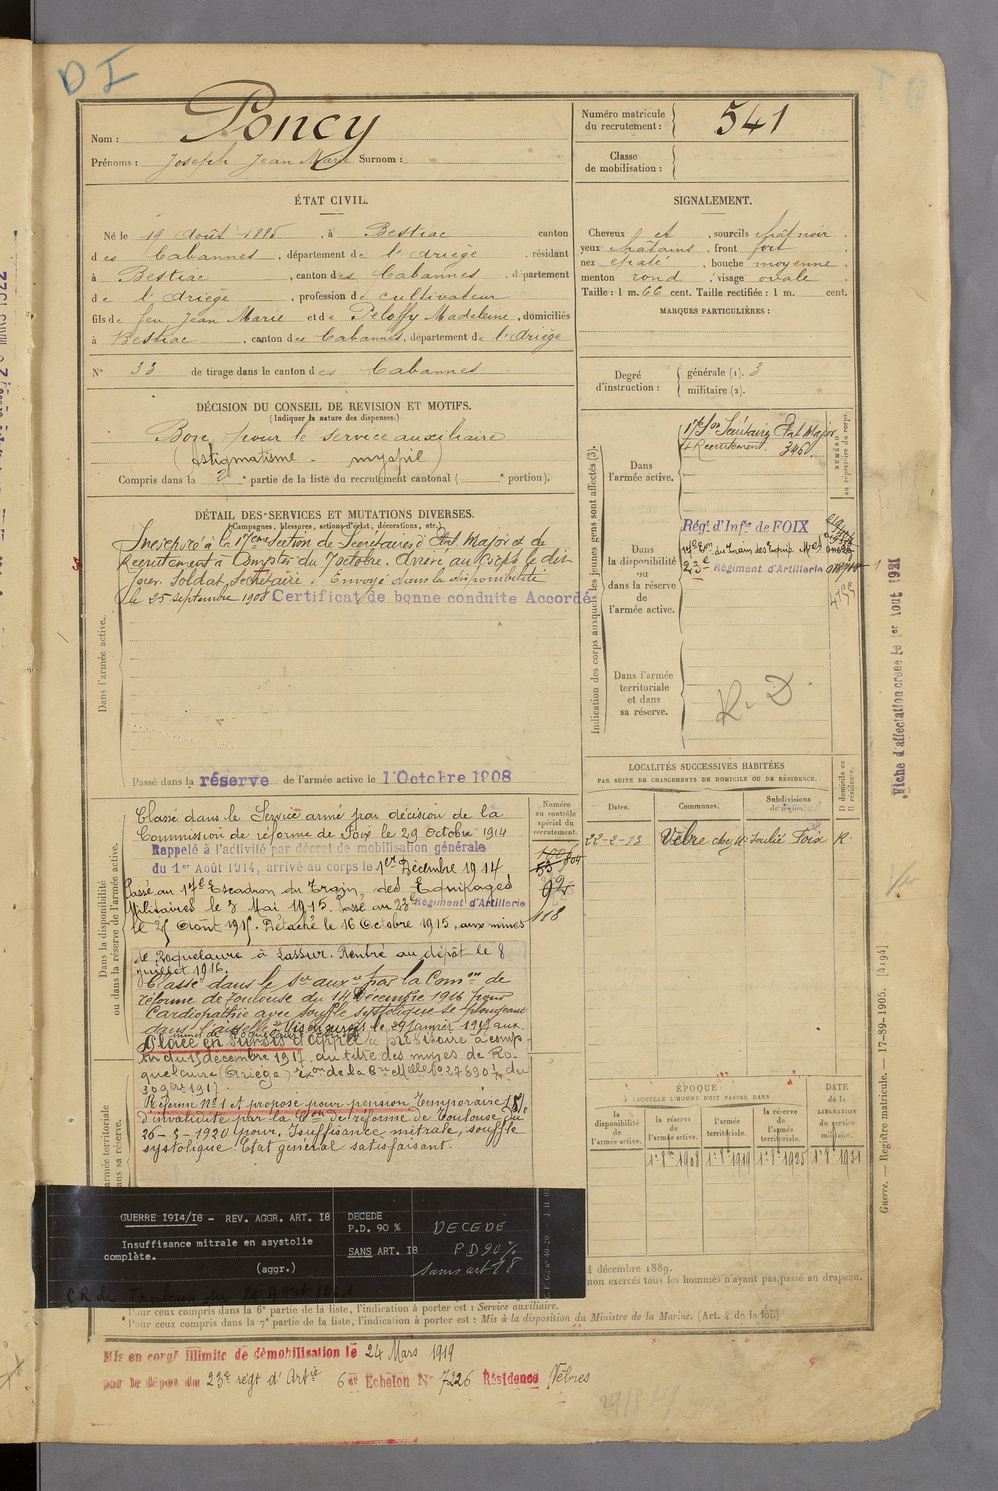 D I
Nom : Poncy
Prénoms : Joseph Jean Marie Surnom :
Numéro matricule du recrutement : 541
Classe de mobilisation :
ÉTAT CIVIL.
Né le 19 Août 1885, à Bestiac canton
des Cabannes, département de l'Ariège, résidant
à Bestiac, canton des Cabannes, département
de l'Ariège, profession de cultivateur
fils de feu Jean Marie et de Peloffy Madeleine, domiciliés
à Bestiac, canton des Cabannes, département de l'Ariège
N° 33 de tirage dans le canton des Cabannes
SIGNALEMENT.
Cheveux et, sourcils chât noir.
yeux châtains, front fort
nez épaté, bouche moyenne.
menton rond, visage ovale
Taille : 1 m. 66 cent. Taille rectifiée : 1 m. cent.
MARQUES PARTICULIÈRES :
Degré d'instruction : générale (1). 3
militaire (2).
DÉCISION DU CONSEIL DE REVISION ET MOTIFS.
(Indiquer la nature des dispenses.)
Bon pour le service auxiliaire
(Astigmatisme - myopie)
Compris dans la 2e partie de la liste du recrutement cantonal ( e portion).
DÉTAIL DES SERVICES ET MUTATIONS DIVERSES.
(Campagnes, blessures, actions d'éclat, décorations, etc.)
Dans l'armée active.
Incorporé à la 17eme Section de Secrétaires d'Etat Major et de
Recrutement à Compter du 7 octobre. Arrivé au Corps le dit
jour. Soldat Secrétaire. Envoyé dans la disponibilité
le 25 septembre 1908. Certificat de bonne conduite Accordé
Passé dans la réserve de l'armée active le 1 Octobre 1908
Indication des corps auxquels les jeunes gens sont affectés (3).
NUMÉRO au répertoire du corps.
Dans l'armée active.
17e Son Secrétaires Etat Major
et Recrutement. 3460.
Dans la disponibilité ou dans la réserve de l'armée active.
Régt d'Infie de FOIX
17e Eon du Train des Equip. Mres
23e Régiment d'Artillerie
4755
Dans l'armée territoriale et dans sa réserve.
R. D.
Fiche d'affectation créée le 1er Aout 1921
LOCALITÉS SUCCESSIVES HABITÉES
PAR SUITE DE CHANGEMENTS DE DOMICILE OU DE RÉSIDENCE.
D domicile ou R résidence.
Dates. Communes. Subdivisions de région.
22-2-13 Vèbre chez Mr Soulié Foix R.
Numéro au contrôle spécial du recrutement.
118
Dans la disponibilité ou dans la réserve de l'armée active.
Classé dans le Service armé par décision de la
Commission de réforme de Foix le 29 Octobre 1914
Rappelé à l'activité par décret de mobilisation générale
du 1er Août 1914, arrivé au corps le 1er Décembre 1914
Passé au 17e Escadron du Train des Equipages
Militaires le 3 Mai 1915. Passé au 23e Régiment d'Artillerie
le 25 Août 1915. Détaché le 16 Octobre 1915, aux mines
de Roquelaure à Lassur. Rentré au dépôt le 8
juillet 1916.
Classé dans le Sce auxre par la Comon de
réforme de Toulouse du 14 Décembre 1916 pour
Cardiopathie avec souffle systolique se plongeant
dans l'aisselle. le 29 janvier 1917 aux
Placé en sursis d'appel provisoire à comp
ter du 1 décembre 1917 au titre des mines de Ro-
quelaure (Ariège) du
30 9bre 1917.
Réforme N° 1 et proposé pour pension temporaire
d'invalidité par la Con de réforme de Toulouse du
26-3-1920 pour. Insuffisance mitrale, souffle
systolique. Etat général satisfaisant
armée territoriale
ans sa réserve.
ÉPOQUE
À LAQUELLE L'HOMME DOIT PASSER DANS
DATE de la LIBÉRATION du service militaire.
la disponibilité de l'armée active. la réserve de l'armée active. l'armée territoriale. la réserve de l'armée territoriale.
1er 8bre 1908 1er 8bre 1919 1er 8bre 1925 1er 8bre 1931
Guerre. — Registre matricule. — 17-89-1905. [4194]
GUERRE 1914/18 - REV. AGGR. ART. 18
Insuffisance mitrale en asystolie
complète.
(aggr.)
DECEDE
P.D. 90 %
SANS ART. 18
DECEDE
P D 90 %
sans art 18
C.R. de Toulouse du
4 décembre 1889.
non exercés tous les hommes n'ayant pas passé au drapeau.
Pour ceux compris dans la 6e partie de la liste, l'indication à porter est : Service auxiliaire.
Pour ceux compris dans la 7e partie de la liste, l'indication à porter est : Mis à la disposition du Ministre de la Marine. (Art. 4 de la loi.)
Mis en congé illimité de démobilisation le 24 Mars 1919
par le dépôt du 23e régt d'Artie 6e Echelon N° 7226 Résidence Vèbres